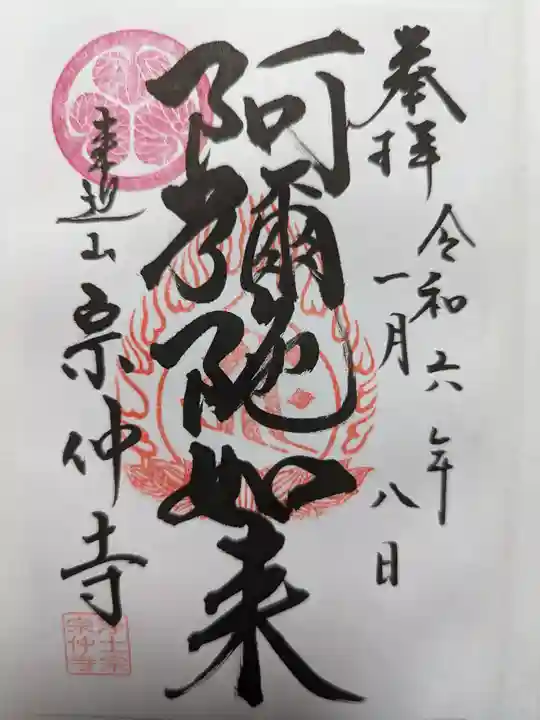 奉拝
令和六年
一月八日
阿彌陀如来
来迎山
宗仲寺
浄土宗
宗仲寺